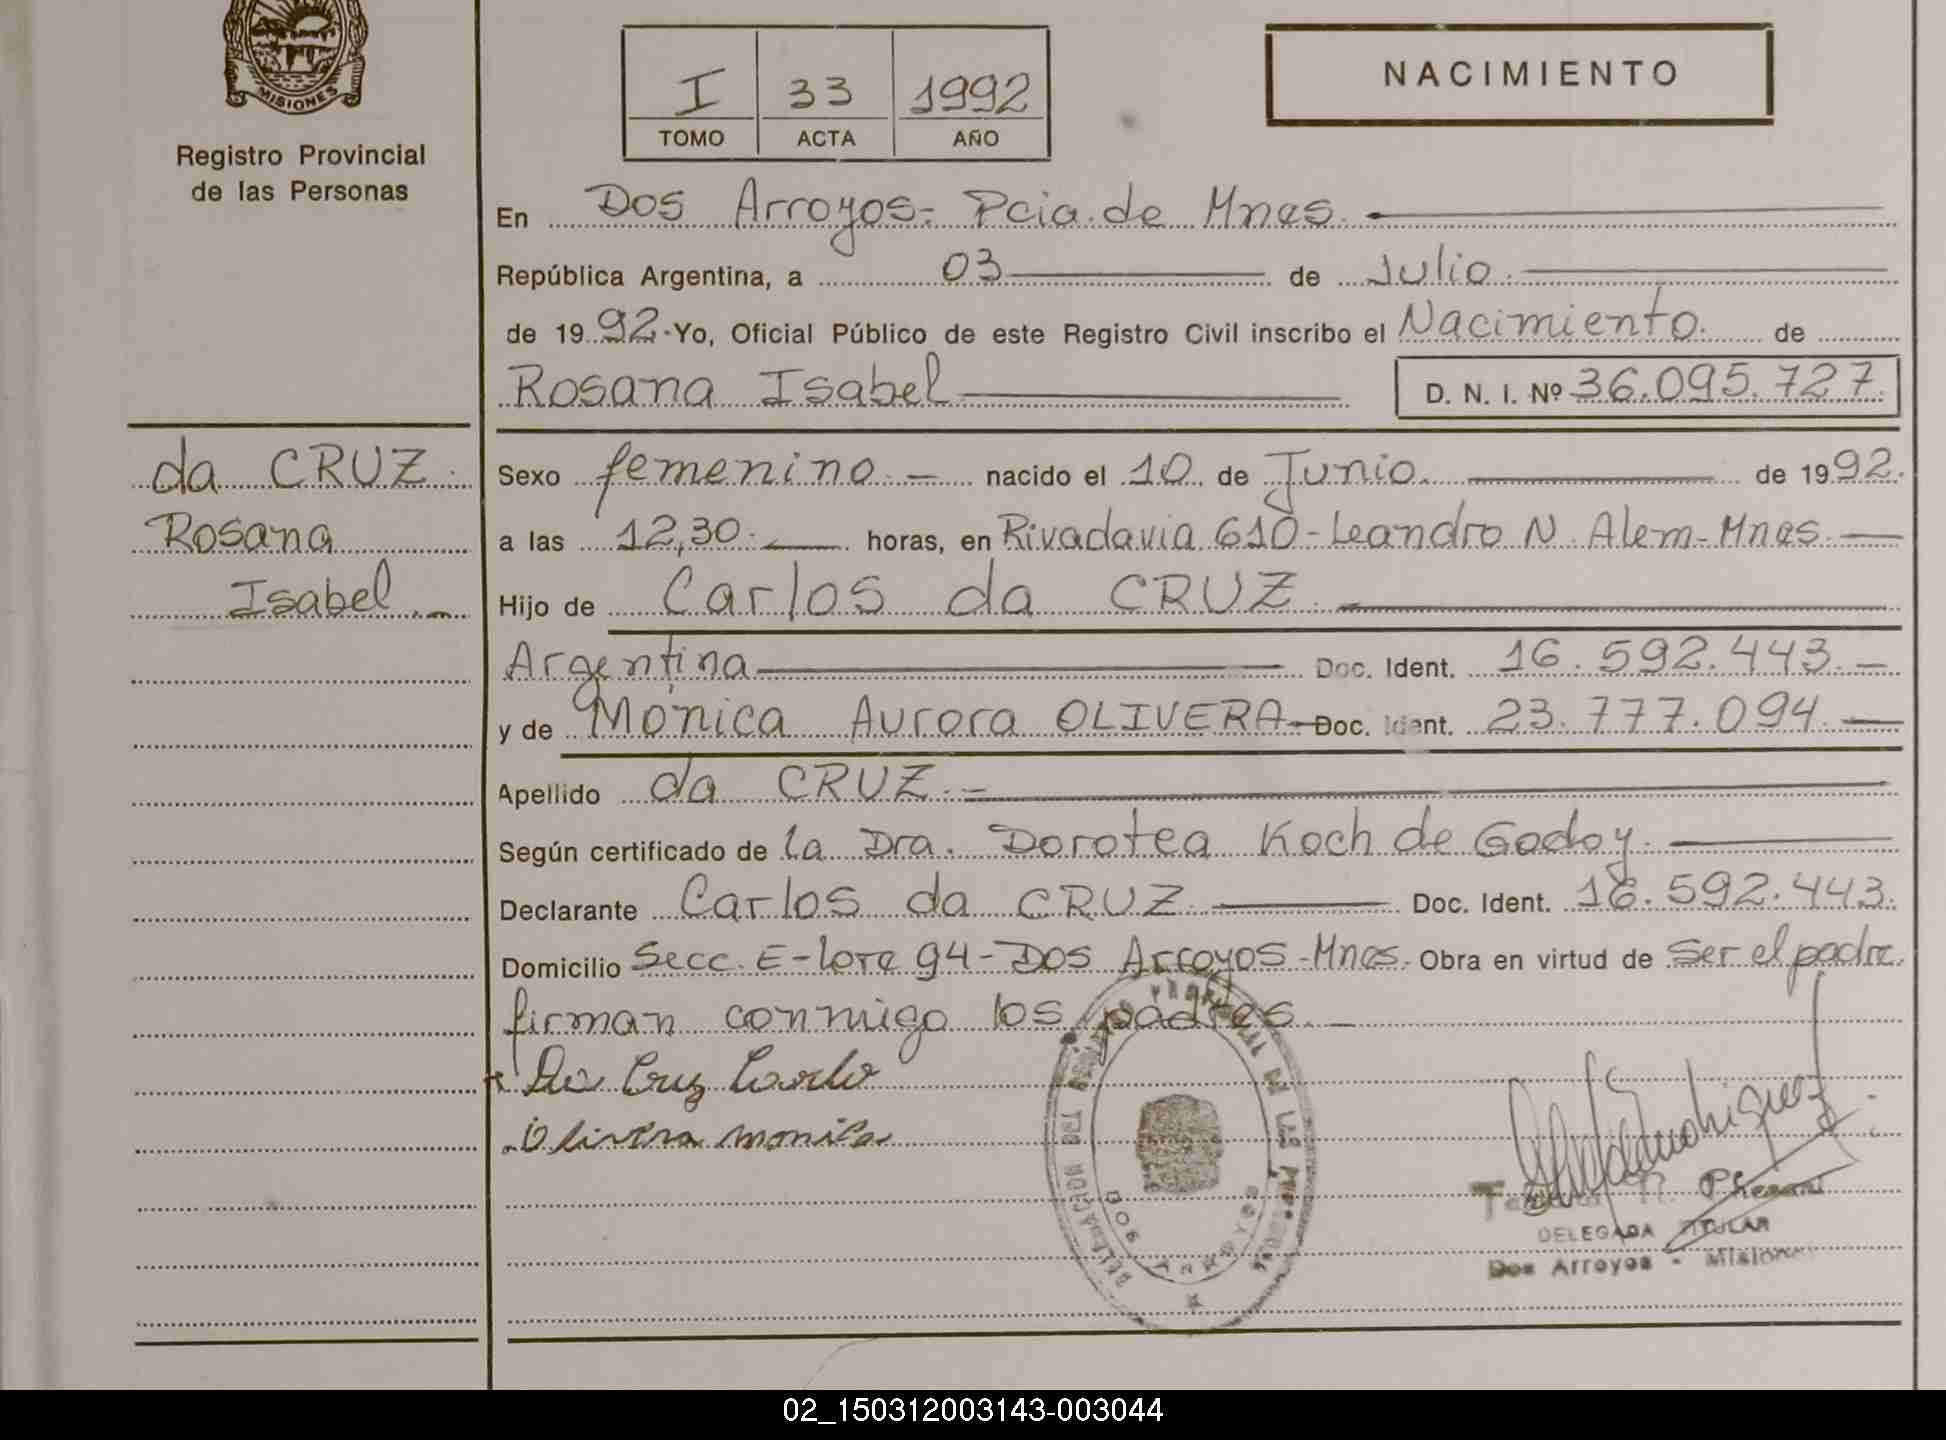 MISIONES
Registro Provincial
de las Personas
I 33 1992
TOMO ACTA AÑO
NACIMIENTO
En Dos Arroyos - Pcia. de Mnes.
República Argentina, a 03 de Julio.
de 1992. Yo, Oficial Público de este Registro Civil inscribo el Nacimiento. de
Rosana Isabel D. N. I. Nº 36.095.727.
da CRUZ.
Rosana
Isabel.-
Sexo femenino.- nacido el 10 de Junio. de 1992.
a las 12,30. horas, en Rivadavia 610 - Leandro N. Alem - Mnes.
Hijo de Carlos da CRUZ.
Argentina Doc. Ident. 16.592.443.-
y de Mónica Aurora OLIVERA Doc. Ident. 23.777.094.
Apellido da CRUZ.-
Según certificado de la Dra. Dorotea Koch de Godoy.
Declarante Carlos da CRUZ. Doc. Ident. 16.592.443.
Domicilio Secc. E - lote 94 - Dos Arroyos - Mnes. Obra en virtud de Ser el padre.
firman conmigo los padres.-
Da Cruz Carlo
Olivera monica
DELEGADA TITULAR
Dos Arroyos - Misiones
DOS ARROYOS
02_150312003143-003044